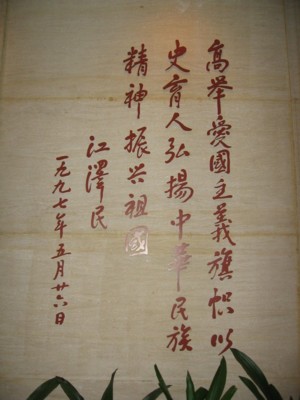 高举爱國主義旗帜以
史育人弘揚中華民族
精神振兴祖國
江澤民
一九九七年五月廿六日